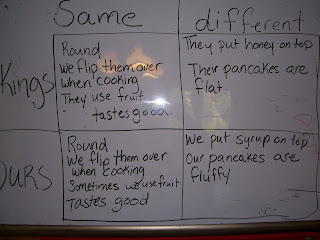 Same different
Kings
Round
We flip them over
when cooking
They use fruit
tastes good
They put honey on top
Their pancakes are
flat.
OURS
Round
We flip them over
when cooking
Sometimes we use fruit
Tastes good
We put syrup on top
Our pancakes are
fluffy